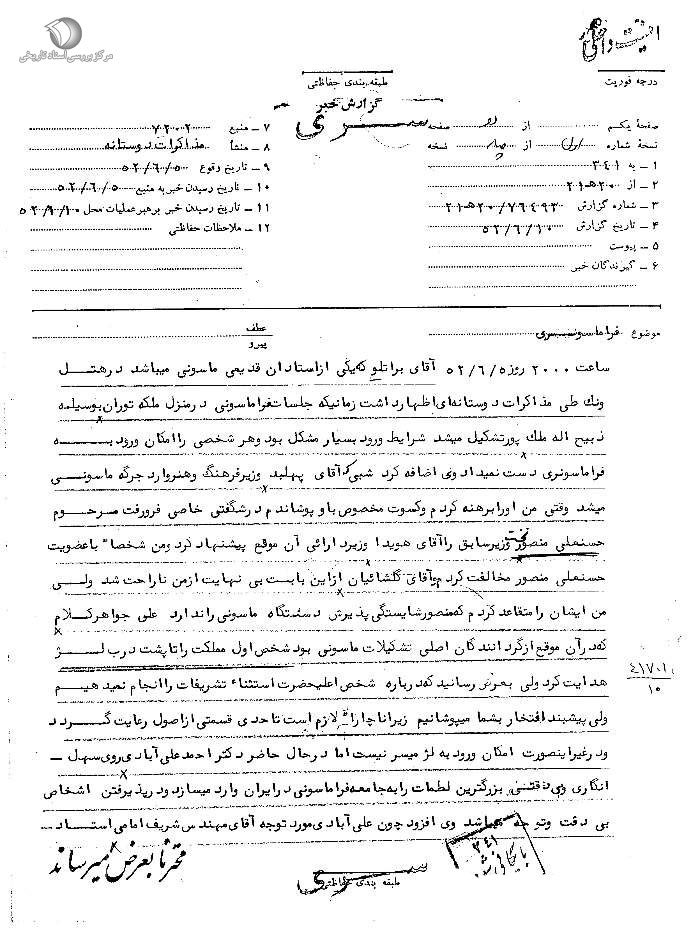 مرکز بررسی اسناد تاریخی
درجه فوریت
طبقه بندی حفاظتی
گزارش خبر
سری
صفحه یکم از دو صفحه
نسخه شماره اول از چهار نسخه
۱ ـ به ۳٤۱
۲ ـ از ۲۰هـ۲۱
۳ ـ شماره گزارش ۷۶٤۹۳/۲۰هـ۲۱
٤ ـ تاریخ گزارش ۵۲/۶/۱۰
۵ ـ پیوست
۶ ـ گیرندگان خبر
۷ ـ منبع ۷۲۰۰۲
۸ ـ منشأ مذاکرات دوستانه
۹ ـ تاریخ وقوع ۵۲/۶/۵
۱۰ ـ تاریخ رسیدن خبر به منبع ۵۲/۶/۵
۱۱ ـ تاریخ رسیدن خبر برهبر عملیات محل ۵۲/۶/۱۰
۱۲ ـ ملاحظات حفاظتی
موضوع فراماسونری
عطف
پیرو
ساعت ۲۰۰۰ روز ۵۲/۶/۵ آقای براتلو که یکی از استادان قدیمی ماسونی میباشد در هتل
ونک طی مذاکرات دوستانه ای اظهار داشت زمانیکه جلسات فراماسونی در منزل ملکه توران بوسیله
ذبیح اله ملک پور تشکیل میشد شرایط ورود بسیار مشکل بود وهر شخصی را امکان ورود به
فراماسونری دست نمیداد وی اضافه کرد شبی که آقای پهلبد وزیر فرهنگ وهنر وارد جرگه ماسونی
میشد وقتی من اورا برهنه کردم وکسوت مخصوص باو پوشاندم در شگفتی خاصی فرو رفت مرحوم
حسنعلی منصور نخست وزیر سابق را آقای هویدا وزیر دارائی آن موقع پیشنهاد کرد ومن شخصا" با عضویت
حسنعلی منصور مخالفت کردم وآقای گلشائیان از این بابت بی نهایت از من ناراحت شد ولی
من ایشان را متقاعد کردم که منصور شایستگی پذیرش دستگاه ماسونی را ندارد علی جواهر کلام
که در آن موقع از گردانندگان اصلی تشکیلات ماسونی بود شخص اول مملکت را تا پشت درب لژ
هدایت کرد ولی بعرض رسانید که درباره شخص اعلیحضرت استثناء تشریفات را انجام نمیدهیم
ولی پیشبند افتخار بشما میپوشانیم زیرا ناچارا" لازم است تا حدی قسمتی از اصول رعایت گردد
ودر غیر اینصورت امکان ورود به لژ میسر نیست اما در حال حاضر دکتر احمد علی آبادی روی سهل ـ
انگاری وبی دقتی بزرگترین لطمات را به جامعه فراماسونی در ایران وارد میسازد ودر پذیرفتن اشخاص
بی دقت وتوجه میباشد وی افزود چون علی آبادی مورد توجه آقای مهندس شریف امامی استاد ـ
٤۱۷۰۱
۱۰
محترما بعرض میرساند
بایگانی شد
۳٤۱
سری
طبقه بندی حفاظتی